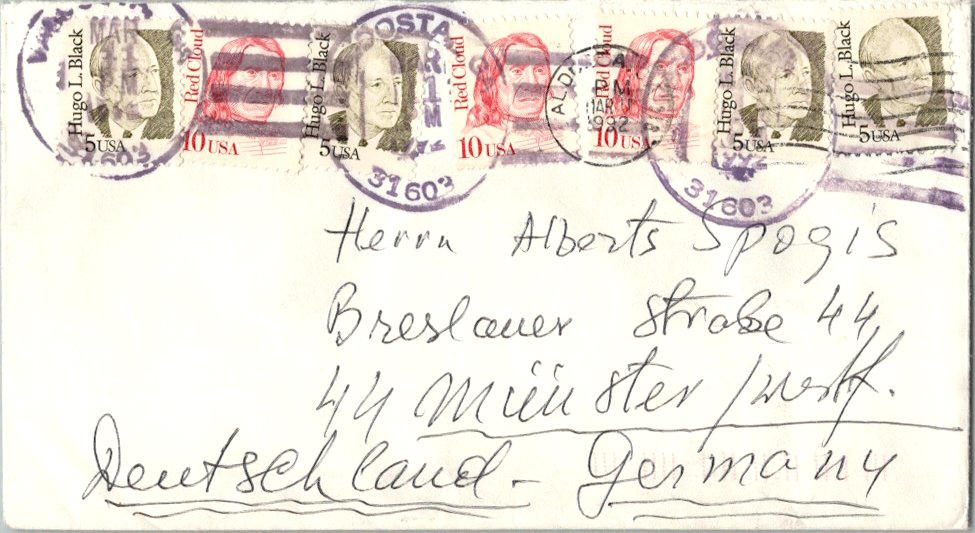 Hugo L. Black 5 USA
Red Cloud 10 USA
Hugo L. Black 5 USA
Red Cloud 10 USA
Red Cloud 10 USA
Hugo L. Black 5 USA
Hugo L. Black 5 USA
31603
31603
31603
MAR
1992
Herrn Alberts Spogis
Breslauer Straße 44
44 Münster / Westf.
Deutschland - Germany